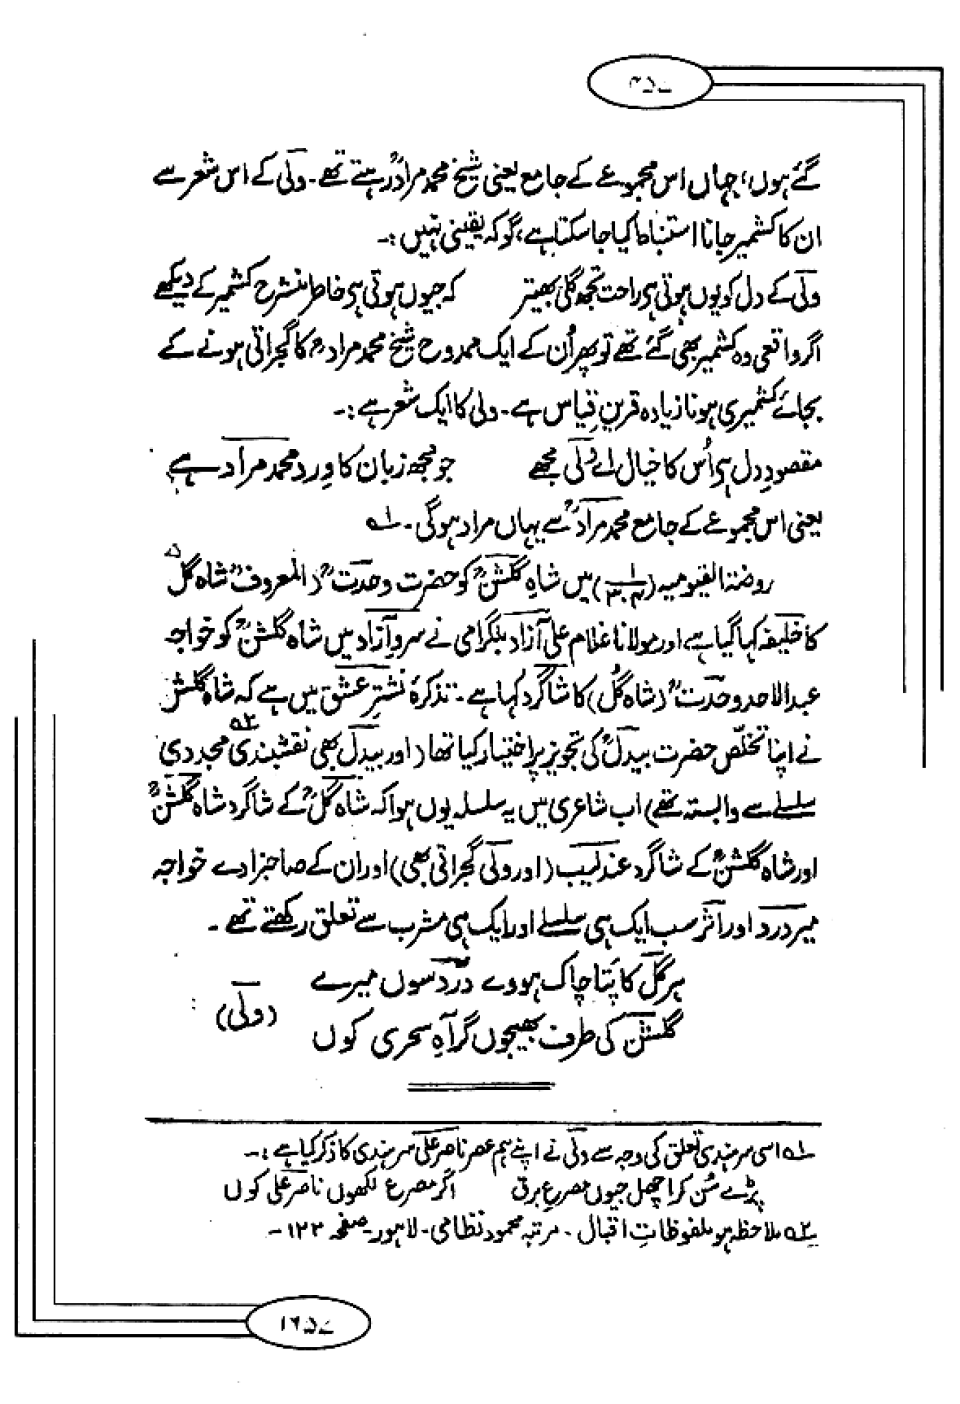 ۴۵۷
گئے ہوں، جہاں اس مجموعے کے جامع یعنی شیخ محمد مرادؒ رہتے تھے۔ ولی کے اس شعر سے
ان کا کشمیر جانا استنباط کیا جا سکتا ہے، گو کہ یقینی نہیں :۔
ولی کے دل کو یوں ہوتی ہی راحت تجھ گلی بھیتر کہ جیوں ہوتی ہی خاطر منشرح کشمیر کے دیکھے
اگر واقعی وہ کشمیر بھی گئے تھے تو پھر اُن کے ایک ممدوح شیخ محمد مرادؒ کا گجراتی ہونے کے
بجائے کشمیری ہونا زیادہ قرینِ قیاس ہے۔ ولی کا ایک شعر ہے :۔
مقصودِ دل ہی اُس کا خیال اے ولی مجھے جو مجھ زبان کا وِرد محمد مراد ہے
یعنی اس مجموعے کے جامع محمد مرادؒ سے یہاں مراد ہوگی۔ ۱ھ
روضۃ القیومیہ (۱/۳۰۳) میں شاہ گلشنؒ کو حضرت وحدتؒ (المعروف بہ شاہ گل)
کا خلیفہ کہا گیا ہے اور مولانا غلام علی آزاد بلگرامی نے سروِ آزاد میں شاہ گلشنؒ کو خواجہ
عبد الاحد وحدتؒ (شاہ گُل) کا شاگرد کہا ہے۔ تذکرۂ نشترِ عشق میں ہے کہ شاہ گلشن
نے اپنا تخلّص حضرت بیدلؒ کی تجویز پر اختیار کیا تھا (اور بیدل بھی نقشبندی ۲ھ مجددی
سلسلے سے وابستہ تھے) اب شاعری میں یہ سلسلہ یوں ہوا کہ شاہ گلؒ کے شاگرد شاہ گلشنؒ
اور شاہ گلشنؒ کے شاگرد عندلیب (اور ولی گجراتی بھی) اور ان کے صاحبزادے خواجہ
میر درد اور اثر سب ایک ہی سلسلے اور ایک ہی مشرب سے تعلق رکھتے تھے۔
ہر گل کا پتا چاک ہووے درد سوں میرے
گلشن کی طرف بھیجوں گر آہِ سحری کوں (ولی)
۱ھ اسی سرہندی تعلق کی وجہ سے ولی نے اپنے ہم عصر ناصر علی سرہندی کا ذکر کیا ہے :۔
پڑے سُن کر اچھل جیوں مصرعِ برق اگر مصرع لکھوں ناصر علی کوں
۲ھ ملاحظہ ہو ملفوظاتِ اقبال ۔ مرتبہ محمود نظامی۔ لاہور۔ صفحہ ۱۲۳۔
۱۲۵۷